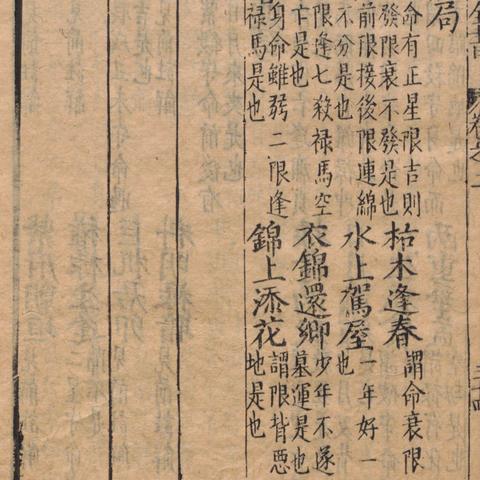 局
命有正星限吉則
發限衰不發是也
枯木逢春
謂命衰限
前限接後限連綿
不分是也
水上駕屋
一年好一
也
限逢七殺祿馬空
是也
衣錦還鄉
少年不遂
墓運是也
身命雖弱二限逢
祿馬是也
錦上添花
謂限皆惡
地是也